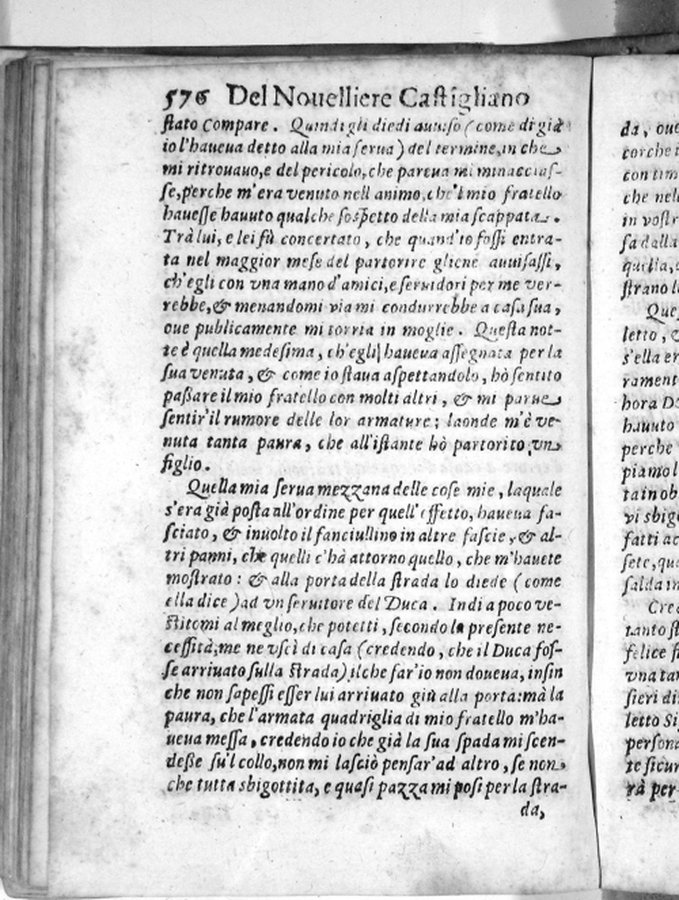 576 Del Nouelliere Castigliano
ſtato Compare. Quindi gli diedi auuiſo (come di già
io l'haueua detto alla mia ſerua) del termine, in che
mi ritrouauo, e del pericolo, che pareua mi minacciaſ-
ſe, perche m'era venuto nell animo, che'l mio fratello
haueſſe hauuto qualche ſoſpetto della mia ſcappata.
Trà lui, e lei fù concertato, che quand'io foſſi entra-
ta nel maggior meſe del partorire gliene auuiſaſſi,
ch'egli con vna mano d'amici, e ſeruidori per me ver-
rebbe, & menandomi via mi condurrebbe a caſa ſua,
oue publicamente mi torria in moglie. Queſta not-
te è quella medeſima, ch'egli haueua aſſegnata per la
ſua venuta, & come io ſtaua aſpettandolo, hò ſentito
paßare il mio fratello con molti altri, & mi parue
ſentir'il rumore delle lor armature; laonde m'è ve-
nuta tanta paura, che all'iſtante hò partorito vn
figlio.
Quella mia ſerua mezzana delle coſe mie, laquale
s'era già poſta all'ordine per quell'effetto, haueua fa-
ſciato, & inuolto il fanciullino in altre faſcie, & al-
tri panni, che quelli c'hà attorno quello, che m'hauete
moſtrato: & alla porta della ſtrada lo diede (come
ella dice) ad vn ſeruitore del Duca. Indi a poco ve-
ſtitomi al meglio, che potetti, ſecondo la preſente ne-
ceſſità, me ne vſcì di caſa (credendo, che il Duca foſ-
ſe arriuato ſulla ſtrada) ilche far'io non doueua, inſin
che non ſapeſſi eſſer lui arriuato giù alla porta: mà la
paura, che l'armata quadriglia di mio fratello m'ha-
ueua meſſa, credendo io che già la ſua ſpada mi ſcen-
deße ſu'l collo, non mi laſciò penſar'ad altro, ſe non
che tutta sbigottita, e quaſi pazza mi poſi per la ſtra-
da,
da, oue
corche i
con tim
che nell
in voſtr
ſa dalla
quella, e
ſtrano l
Queſ
letto, &
s'ella er
rament
hora D
hauuto
perche
piamo l
ta in ob
vi sbigo
fatti ac
ſete, qua
ſalda in
Cre
tanto ſt
felice f
vna tan
ſieri di
letto Si
perſona
te ſicur
rà per